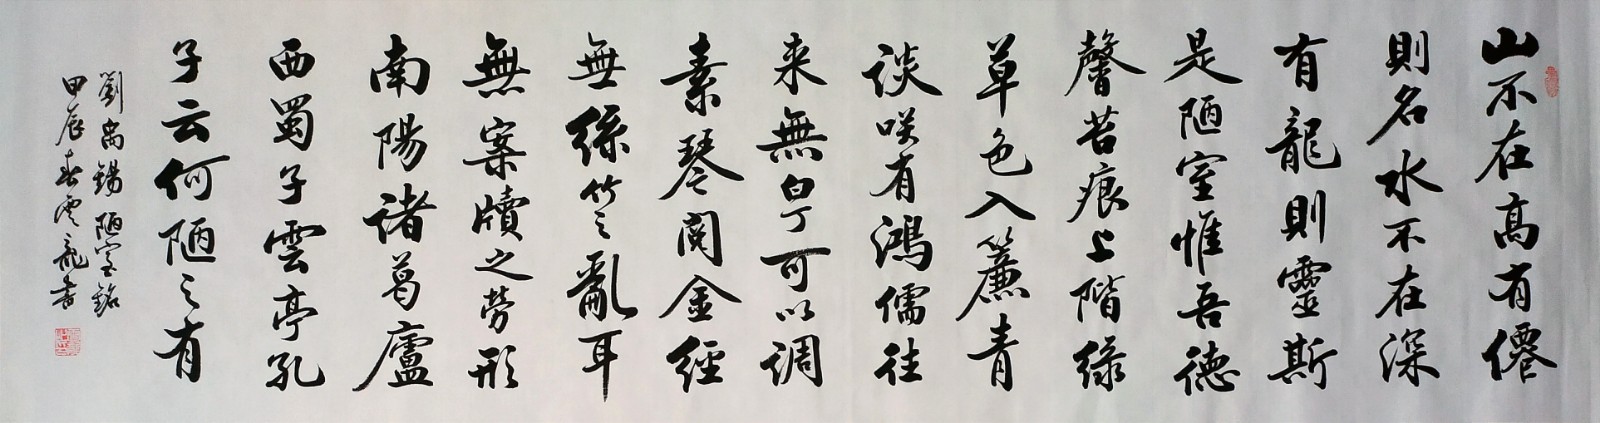 山不在高有僊
則名水不在深
有龍則靈斯
是陋室惟吾德
馨苔痕上階緑
草色入簾青
談咲有鴻儒往
来無白丁可以调
素琴阅金經
無絲竹之亂耳
無案牘之劳形
南陽諸葛廬
西蜀子雲亭孔
子云何陋之有
劉禹錫陋室銘
甲辰春雲龍書